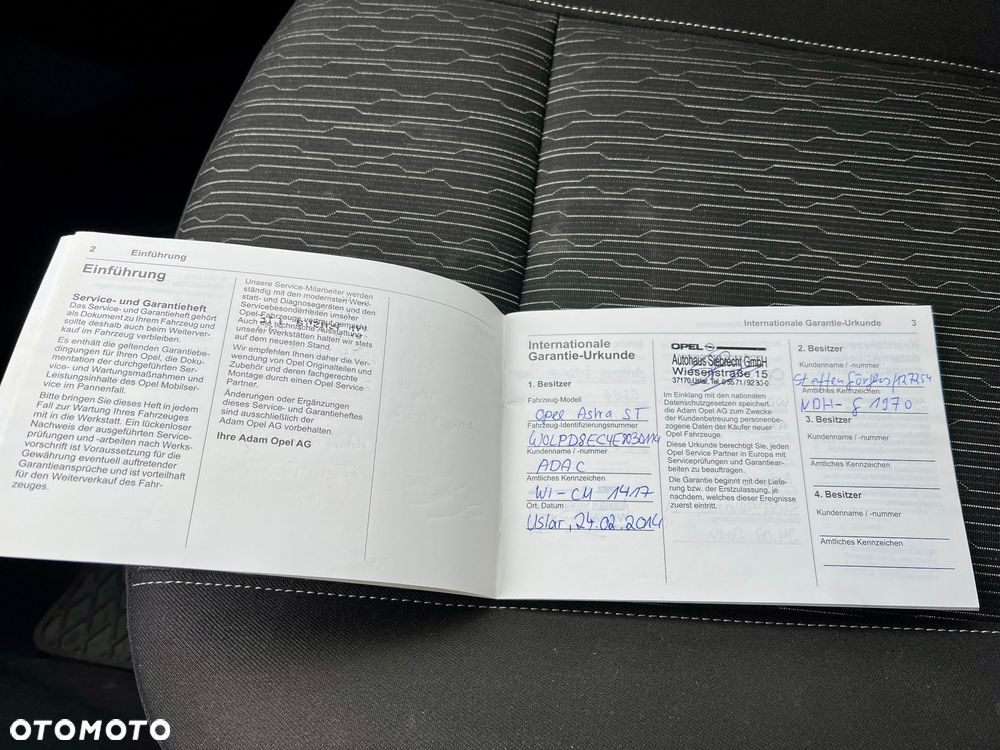 2 Einführung
Einführung
Service- und Garantieheft
Das Service- und Garantieheft gehört
als Dokument zu Ihrem Fahrzeug und
sollte deshalb auch beim Weiterver-
kauf im Fahrzeug verbleiben.
Es enthält die geltenden Garantiebe-
dingungen für Ihren Opel, die Doku-
mentation der durchgeführten Ser-
vice- und Wartungsmaßnahmen und
Leistungsinhalte des Opel Mobilser-
vice im Pannenfall.
Bitte bringen Sie dieses Heft in jedem
Fall zur Wartung Ihres Fahrzeuges
mit in die Werkstatt. Ein lückenloser
Nachweis der ausgeführten Service-
prüfungen und -arbeiten nach Werks-
vorschrift ist Voraussetzung für die
Gewährung eventuell auftretender
Garantieansprüche und ist vorteilhaft
für den Weiterverkauf des Fahr-
zeuges.
Unsere Service-Mitarbeiter werden
ständig mit den modernsten Werk-
statt- und Diagnosegeräten und den
Servicebesonderheiten unserer
Opel-Fahrzeuge vertraut gemacht.
Auch die technische Ausstattung
unserer Werkstätten halten wir stets
auf dem neuesten Stand.
Wir empfehlen Ihnen daher die Ver-
wendung von Originalteilen und
Zubehör und deren fachgerechte
Montage durch einen Opel Service
Partner.
Änderungen oder Ergänzungen
dieses Service- und Garantieheftes
sind ausschließlich der
Adam Opel AG vorbehalten.
Ihre Adam Opel AG
Internationale Garantie-Urkunde 3
Internationale
Garantie-Urkunde
1. Besitzer
Fahrzeug-Modell
Opel Astra ST
Fahrzeug-Identifizierungsnummer
W0LPD8EC4E8030114
Kundenname / -nummer
ADAC
Amtliches Kennzeichen
WI-CM 1417
Ort, Datum
Uslar, 24.02.2014
OPEL
Autohaus Siebrecht GmbH
Wiesenstraße 15
37170 Uslar, Tel. 0 55 71 / 92 30-0
Im Einklang mit den nationalen
Datenschutzgesetzen speichert
die Adam Opel AG zum Zwecke
der Kundenbetreuung personenbe-
zogene Daten der Käufer neuer
Opel Fahrzeuge.
Diese Urkunde berechtigt Sie, jeden
Opel Service Partner in Europa mit
Serviceprüfungen und Garantiear-
beiten zu beauftragen.
Die Garantie beginnt mit der Liefe-
rung bzw. der Erstzulassung, je
nachdem, welches dieser Ereignisse
zuerst eintritt.
2. Besitzer
Kundenname / -nummer
Steffen 127254
Amtliches Kennzeichen
NDH-G 1970
3. Besitzer
Kundenname / -nummer
Amtliches Kennzeichen
4. Besitzer
Kundenname / -nummer
Amtliches Kennzeichen
OTOMOTO